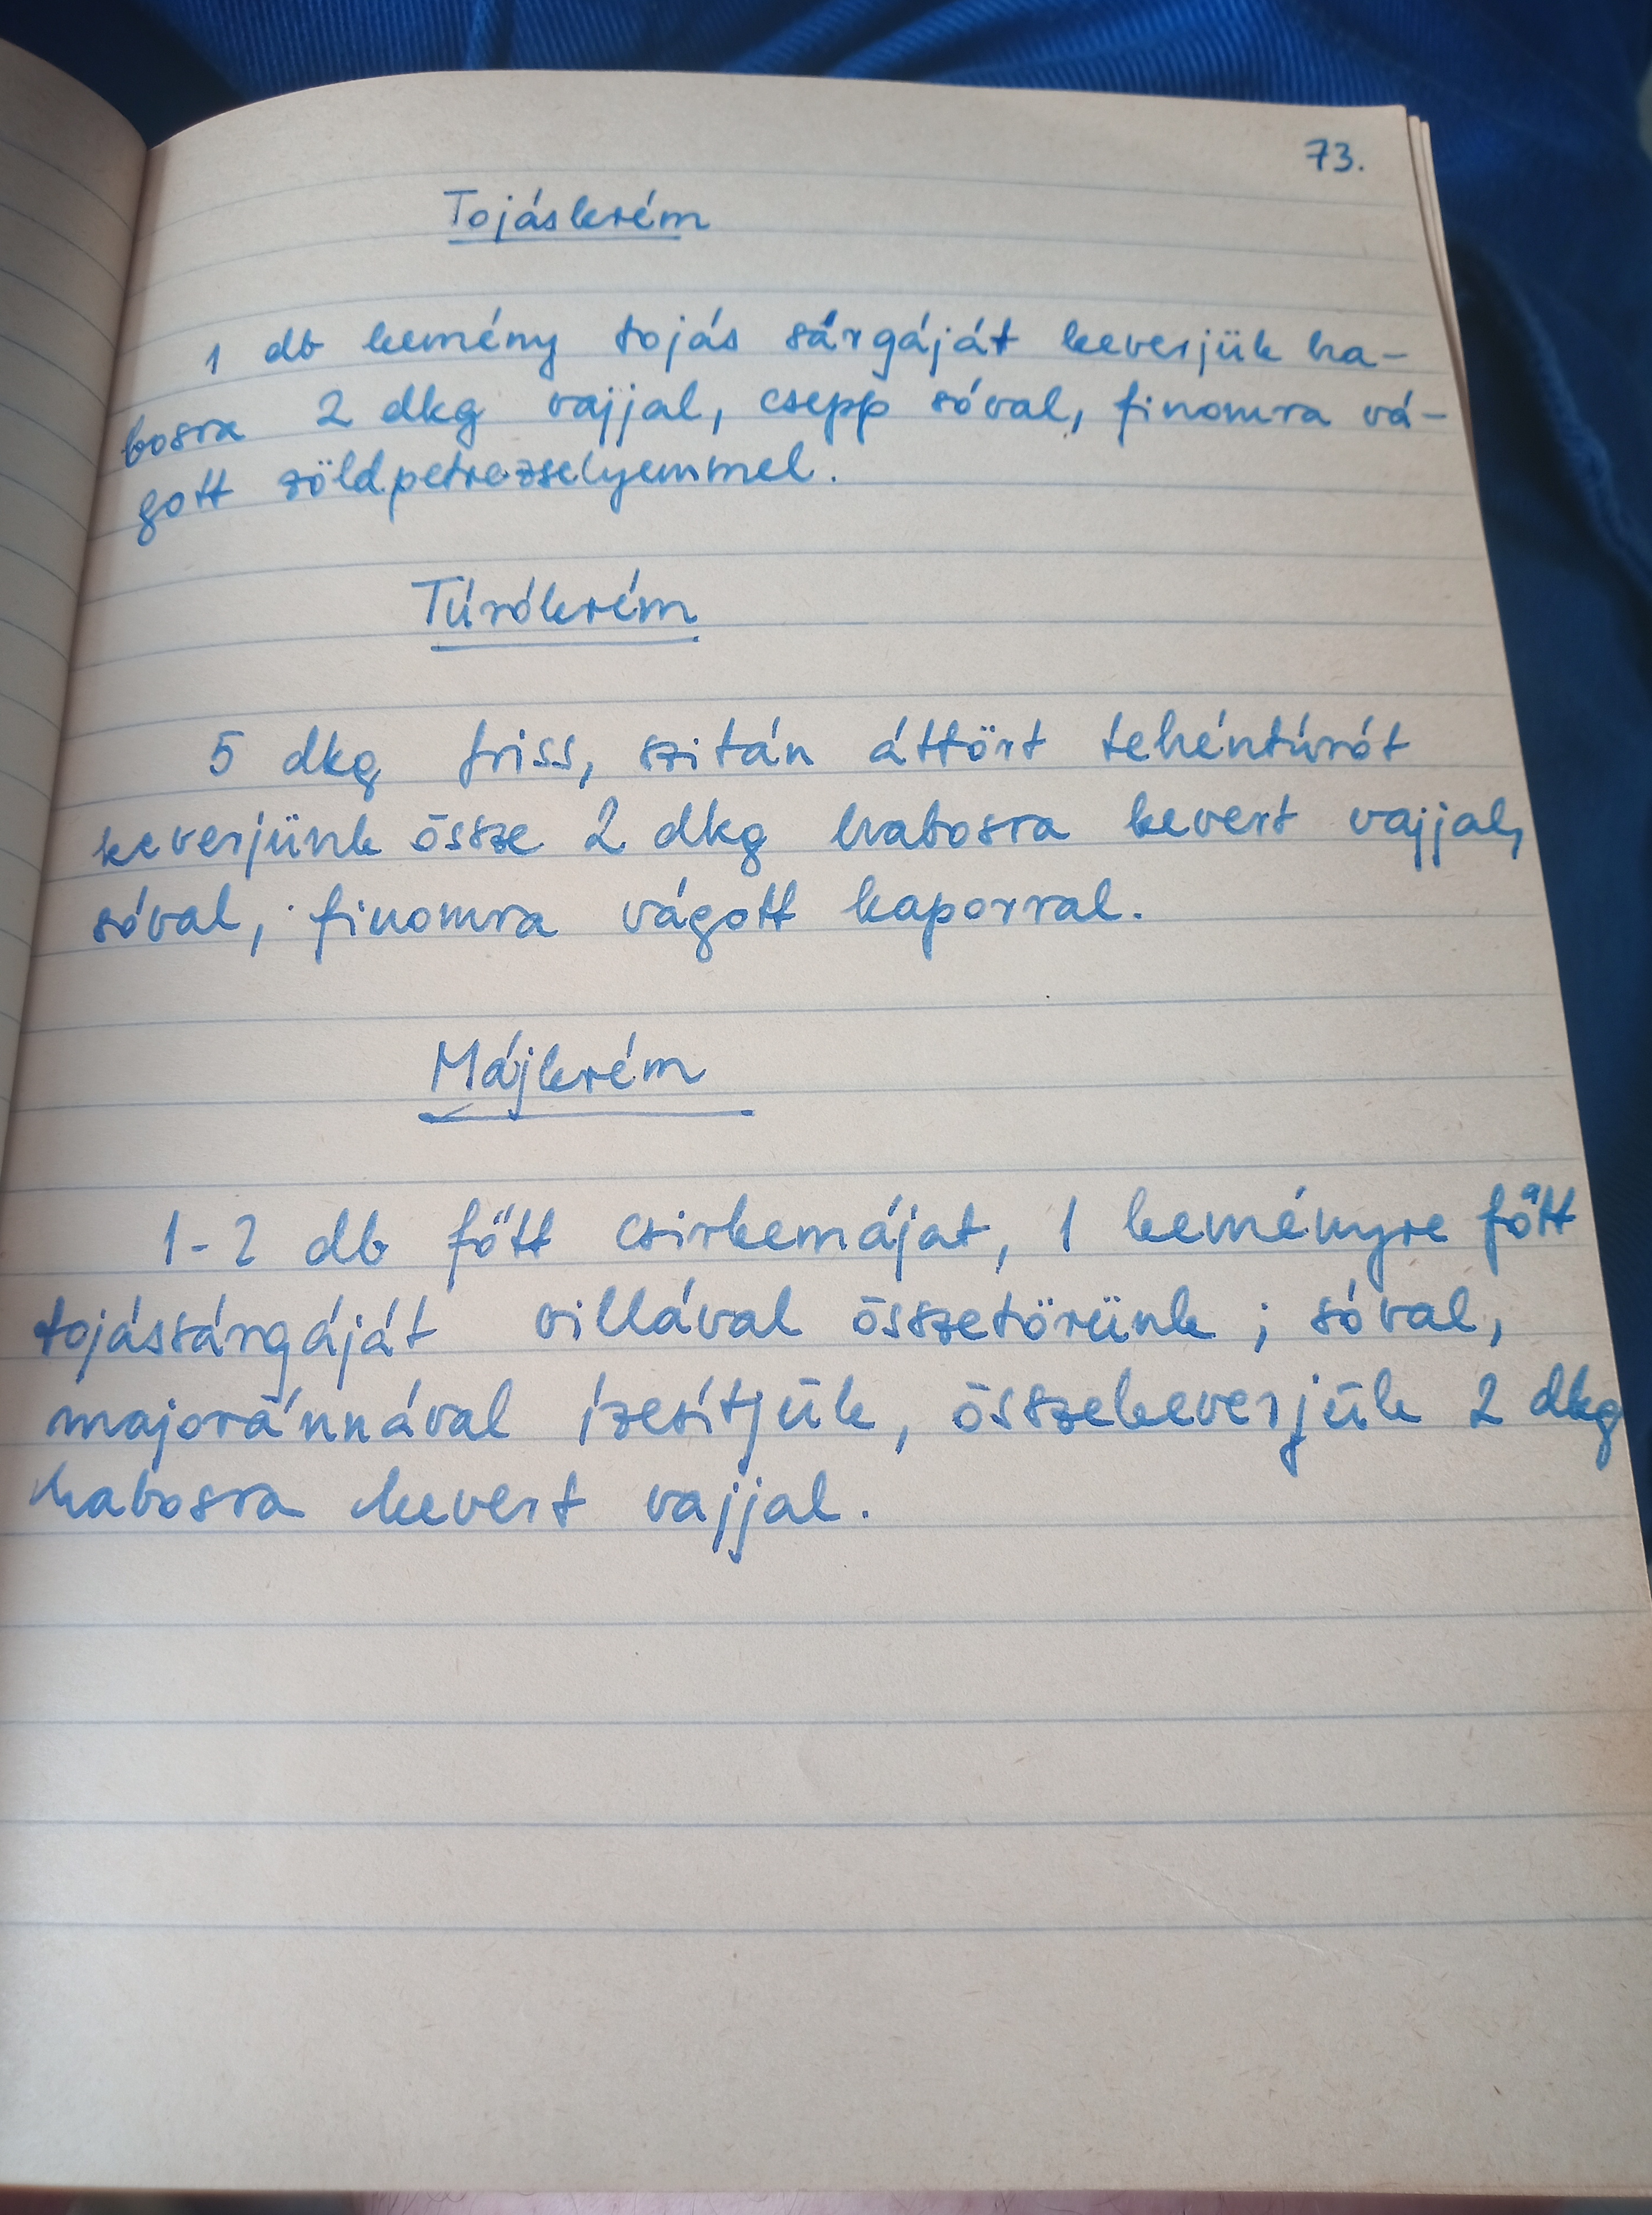 73.
Tojáskrém
1 db kemény tojás sárgáját keverjük ha-
bosra 2 dkg vajjal, csepp sóval, finomra vá-
gott zöldpetrezselyemmel.
Túrókrém
5 dkg friss, szitán áttört tehéntúrót
keverjünk össze 2 dkg habosra kevert vajjal,
sóval, finomra vágott kaporral.
Májkrém
1-2 db főtt csirkemájat, 1 keményre főtt
tojássárgáját villával összetörünk; sóval,
majoránnával ízesítjük, összekeverjük 2 dkg
habosra kevert vajjal.